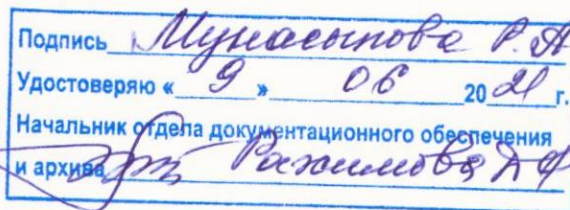 Подпись Мунасыпова Р.А
Удостоверяю « 9 » 06 2021 г.
Начальник отдела документационного обеспечения
и архива Рахимова Д Ф